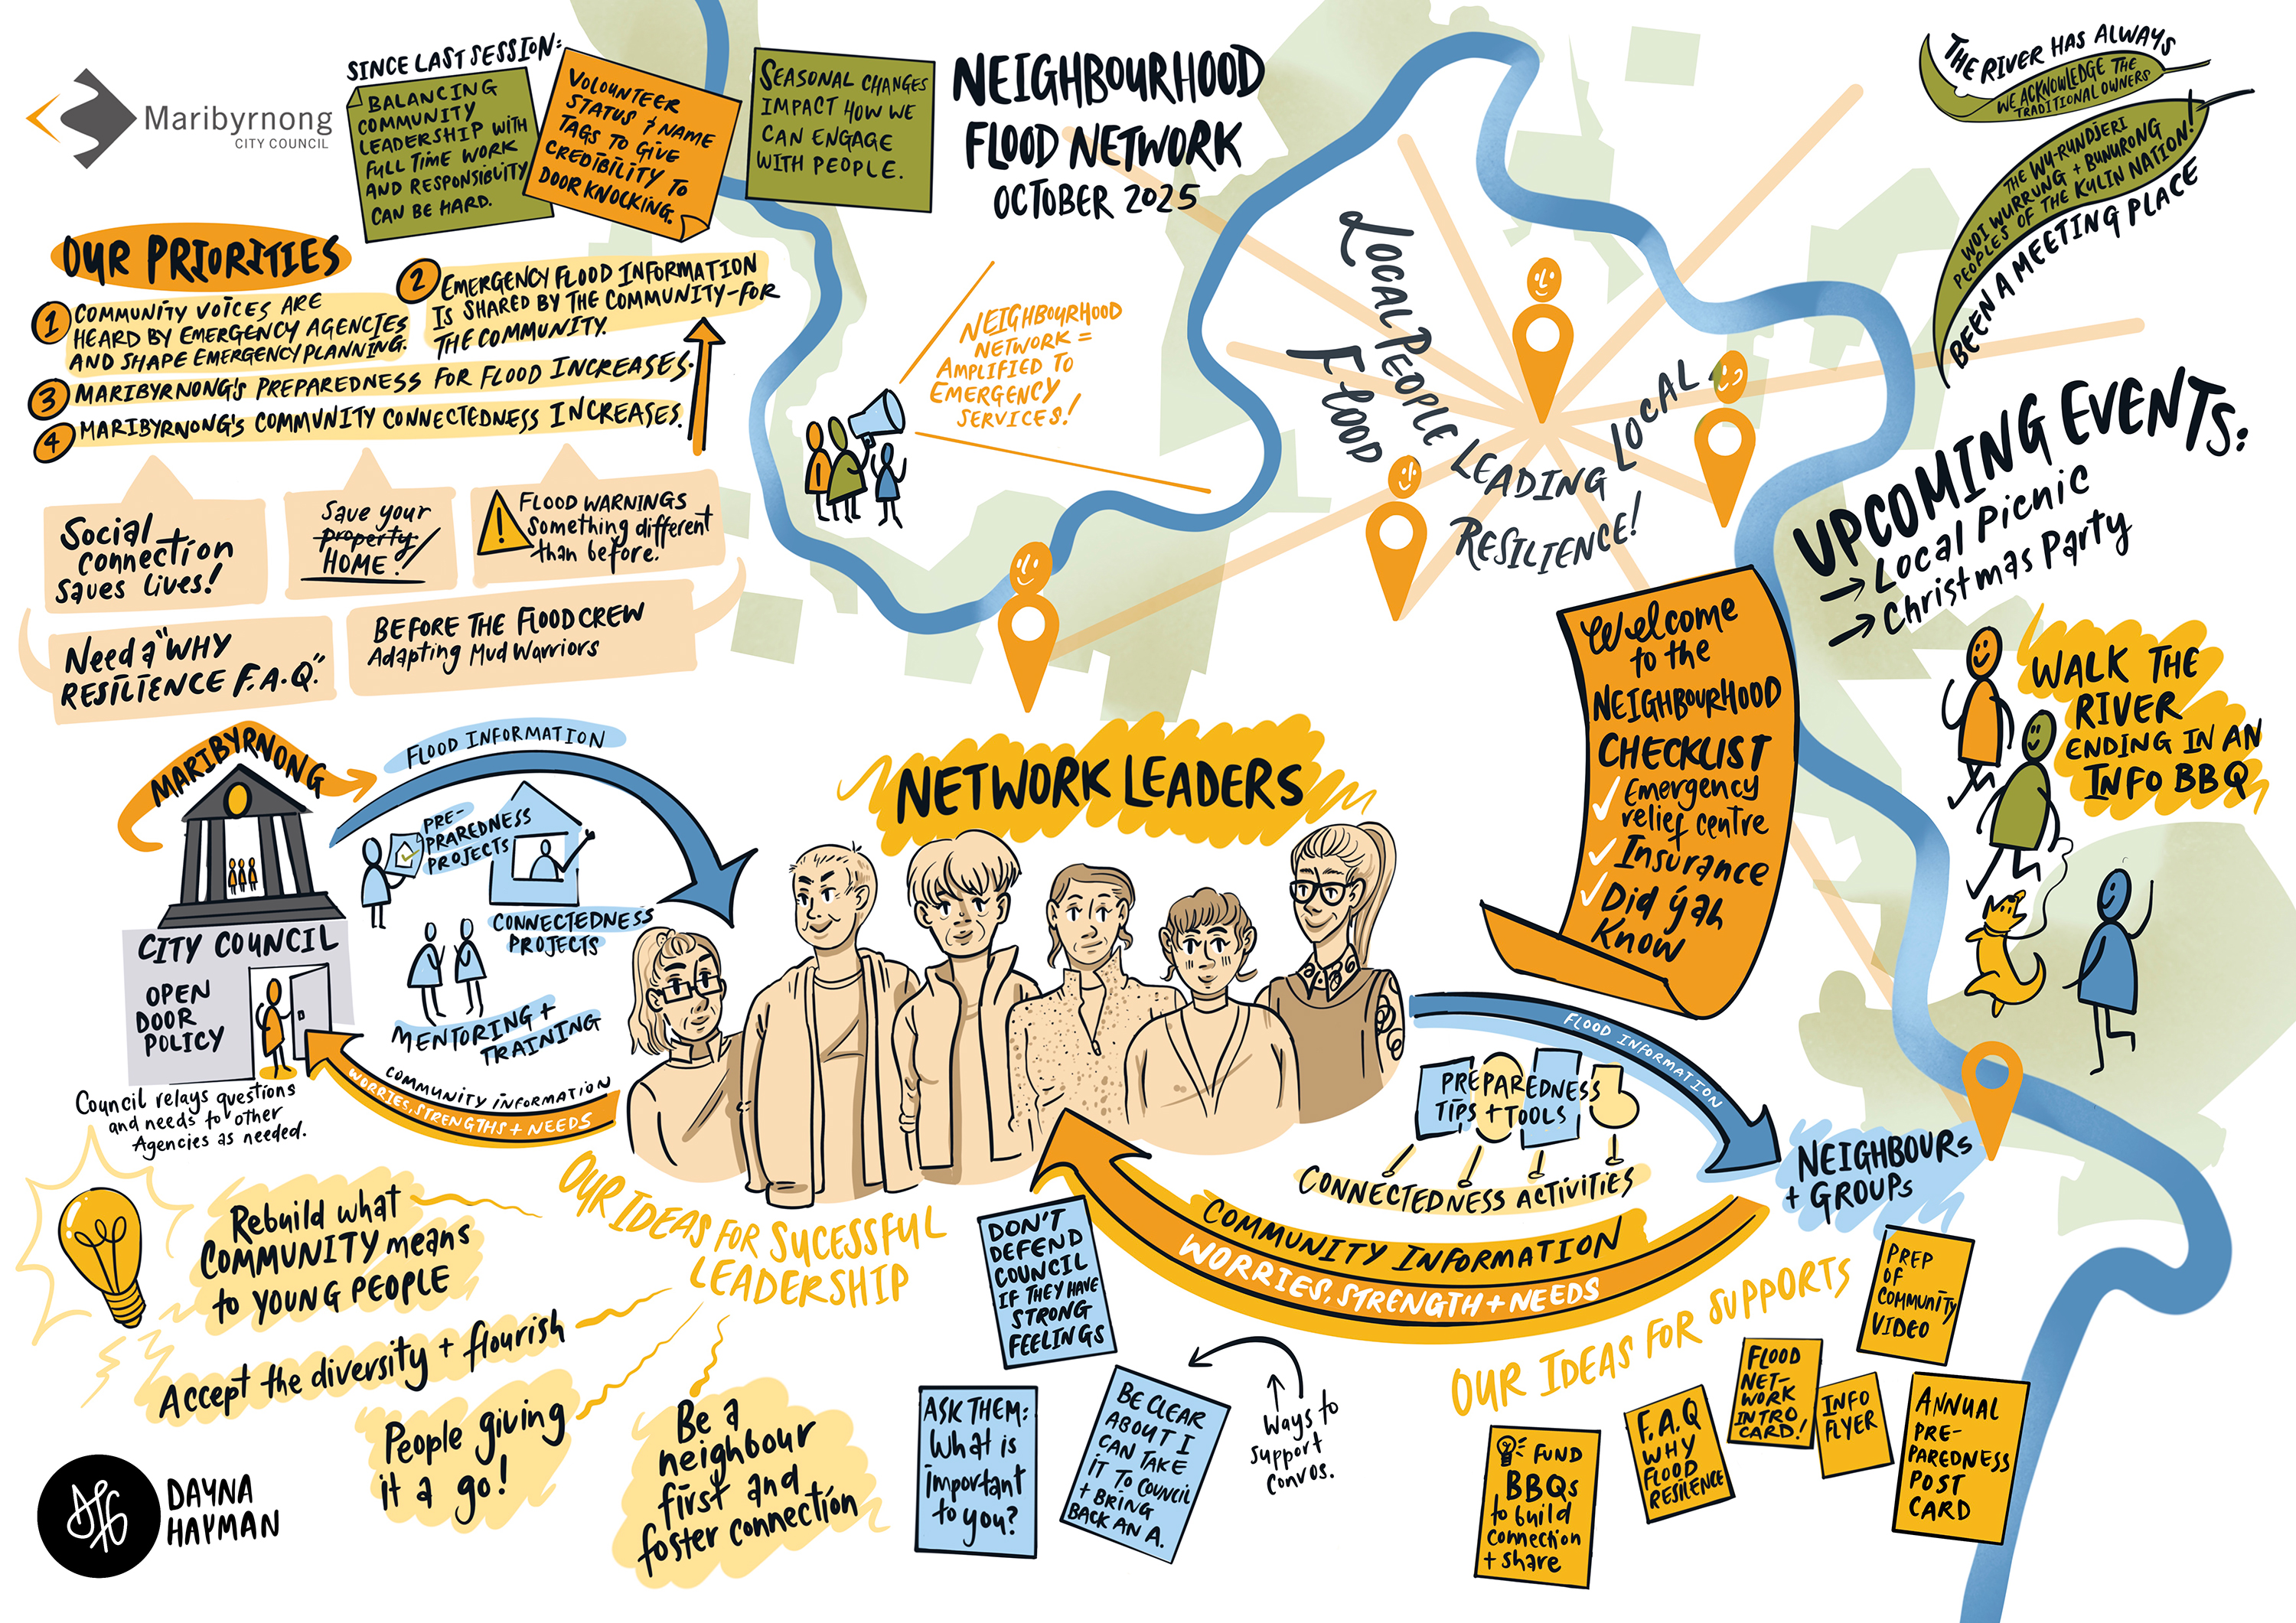 Maribyrnong
CITY COUNCIL
SINCE LAST SESSION:
BALANCING
COMMUNITY
LEADERSHIP WITH
FULL TIME WORK
AND RESPONSIBILITY
CAN BE HARD.
VOLOUNTEER
STATUS + NAME
TAGS TO GIVE
CREDIBILITY TO
DOOR KNOCKING.
SEASONAL CHANGES
IMPACT HOW WE
CAN ENGAGE
WITH PEOPLE.
NEIGHBOURHOOD
FLOOD NETWORK
OCTOBER 2025
THE RIVER HAS ALWAYS
WE ACKNOWLEDGE THE
TRADITIONAL OWNERS
THE WU-RUNDJERI
WOI WURRUNG + BUNURONG
PEOPLES OF THE KULIN NATION!
BEEN A MEETING PLACE
OUR PRIORITIES
1 COMMUNITY VOICES ARE
HEARD BY EMERGENCY AGENCIES
AND SHAPE EMERGENCY PLANNING.
2 EMERGENCY FLOOD INFORMATION
IS SHARED BY THE COMMUNITY-FOR
THE COMMUNITY.
3 MARIBYRNONG'S PREPAREDNESS FOR FLOOD INCREASES.
4 MARIBYRNONG'S COMMUNITY CONNECTEDNESS INCREASES.
Social
connection
saves lives!
Save your
property
HOME!
! FLOOD WARNINGS
something different
than before.
Need a "WHY
RESILIENCE F.A.Q."
BEFORE THE FLOOD CREW
Adapting Mud Warriors
NEIGHBOURHOOD
NETWORK =
AMPLIFIED TO
EMERGENCY
SERVICES!
LOCAL PEOPLE LEADING LOCAL
FLOOD RESILIENCE!
UPCOMING EVENTS:
→ Local Picnic
→ Christmas Party
WALK THE
RIVER
ENDING IN AN
INFO BBQ
Welcome
to the
NEIGHBOURHOOD
CHECKLIST
✓ Emergency
relief centre
✓ Insurance
✓ Did yah
Know
MARIBYRNONG
CITY COUNCIL
OPEN
DOOR
POLICY
Council relays questions
and needs to other
Agencies as needed.
FLOOD INFORMATION
PRE-
PRAREDNESS
PROJECTS
CONNECTEDNESS
PROJECTS
MENTORING +
TRAINING
COMMUNITY INFORMATION
WORRIES, STRENGTHS + NEEDS
NETWORK LEADERS
FLOOD INFORMATION
PREPAREDNESS
TIPS + TOOLS
CONNECTEDNESS ACTIVITIES
COMMUNITY INFORMATION
WORRIES, STRENGTH + NEEDS
NEIGHBOURS
+ GROUPS
OUR IDEAS FOR SUCESSFUL
LEADERSHIP
Rebuild what
COMMUNITY means
to YOUNG PEOPLE
Accept the diversity + flourish
People giving
it a go!
Be a
neighbour
first and
foster connection
DON'T
DEFEND
COUNCIL
IF THEY HAVE
STRONG
FEELINGS
ASK THEM:
What is
important
to you?
BE CLEAR
ABOUT I
CAN TAKE
IT TO COUNCIL
+ BRING
BACK AN A.
Ways to
support
convos.
OUR IDEAS FOR SUPPORTS
PREP
OF
COMMUNITY
VIDEO
FLOOD
NET-
WORK
INTRO
CARD!
INFO
FLYER
F.A.Q
WHY
FLOOD
RESILENCE
FUND
BBQs
to build
connection
+ share
ANNUAL
PRE-
PAREDNESS
POST
CARD
DAYNA
HAYMAN